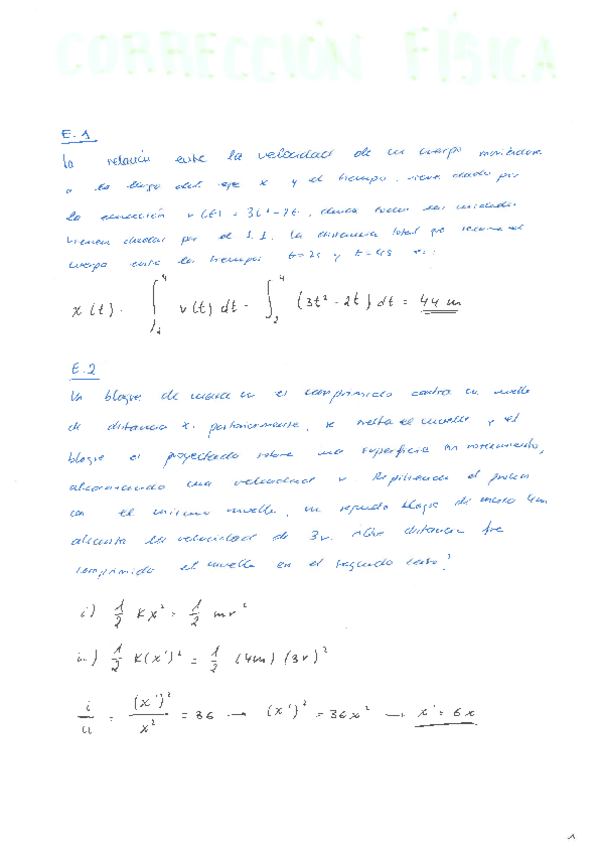 CORRECCIÓN FÍSICA
E.1
La relación entre la velocidad de un cuerpo moviéndose
a lo largo del eje x y el tiempo, viene dada por
la ecuación v(t) = 3t² - 2t, donde todas las unidades
vienen dadas por el S.I. La distancia total que recorre el
cuerpo entre los tiempos t=2s y t=4s es:
x(t) = ∫₂⁴ v(t) dt = ∫₂⁴ (3t² - 2t) dt = 44 m
E.2
Un bloque de masa m es comprimido contra un muelle
de distancia x. posteriormente, se suelta el muelle y el
bloque es proyectado sobre una superficie sin rozamiento,
alcanzando una velocidad v. Repitiendo el proceso
con el mismo muelle, un segundo bloque de masa 4m
alcanza la velocidad de 3v. distancia fue
comprimido el muelle en el segundo caso?
i) 1/2 Kx² = 1/2 mv²
ii) 1/2 K(x')² = 1/2 (4m) (3v)²
i/ii = (x')²/x² = 36 → (x')² = 36x² → x' = 6x
1